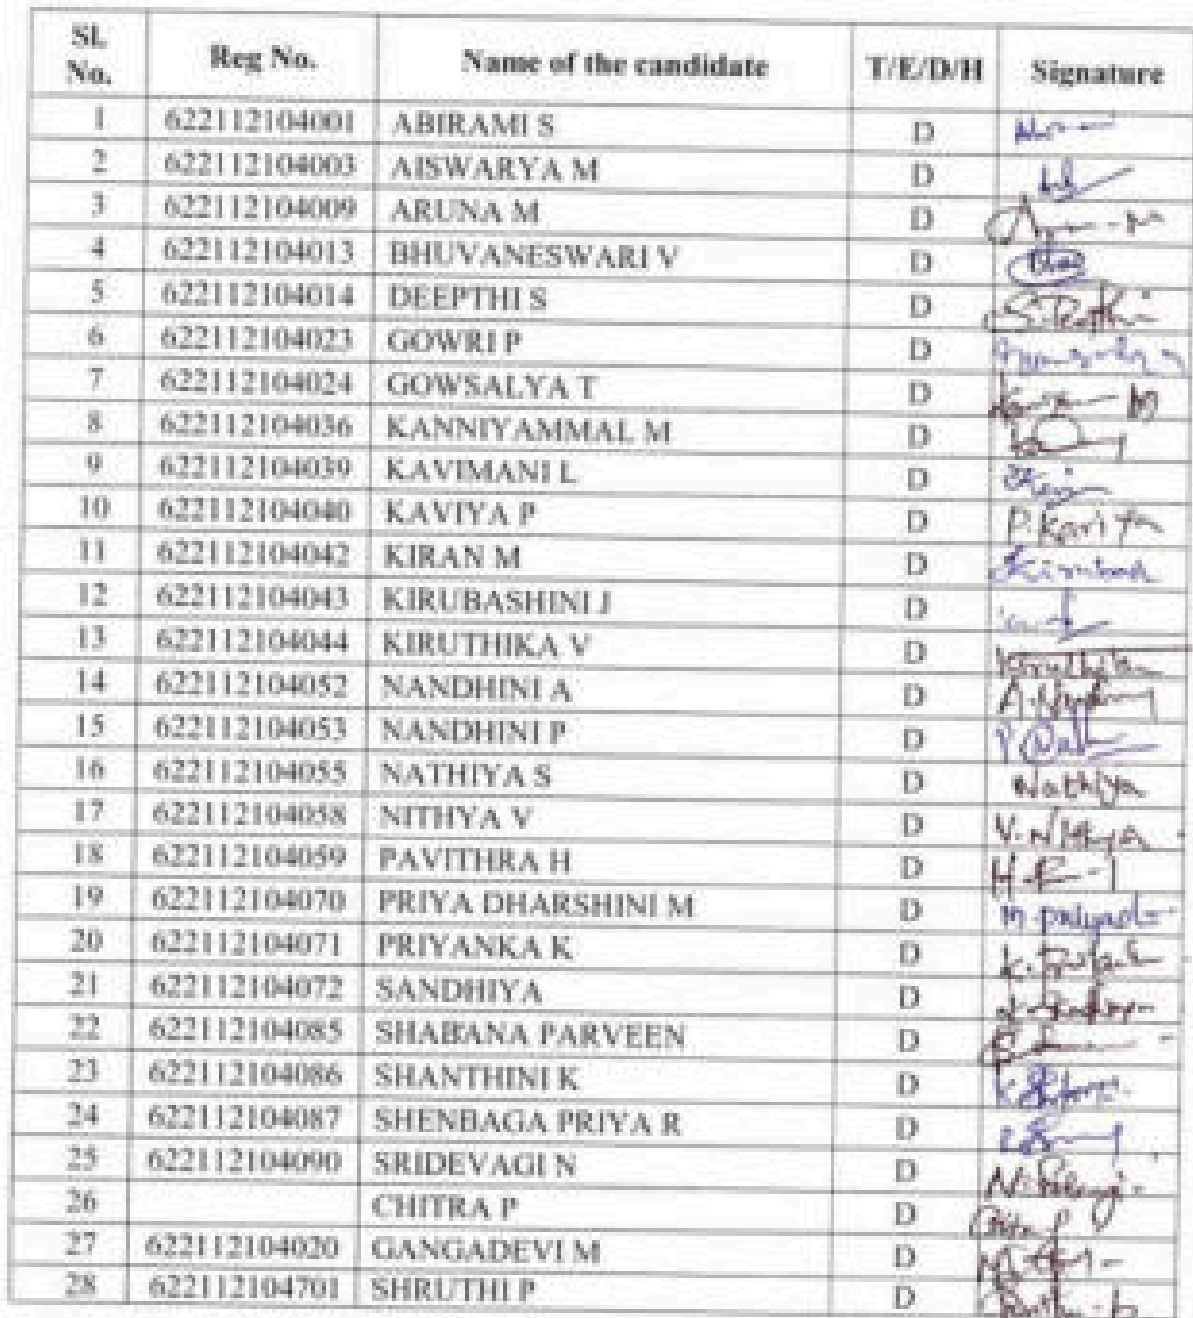 Sl. No. Reg No. Name of the candidate T/E/D/H Signature
1 622112104001 ABIRAMI S D
2 622112104003 AISWARYA M D
3 622112104009 ARUNA M D
4 622112104013 BHUVANESWARI V D
5 622112104014 DEEPTHI S D
6 622112104023 GOWRI P D
7 622112104024 GOWSALYA T D
8 622112104036 KANNIYAMMAL M D
9 622112104039 KAVIMANI L D
10 622112104040 KAVIYA P D P. Kaviya
11 622112104042 KIRAN M D
12 622112104043 KIRUBASHINI J D
13 622112104044 KIRUTHIKA V D Kiruthika
14 622112104052 NANDHINI A D
15 622112104053 NANDHINI P D
16 622112104055 NATHIYA S D Nathiya
17 622112104058 NITHYA V D V. Nithya
18 622112104059 PAVITHRA H D
19 622112104070 PRIYA DHARSHINI M D
20 622112104071 PRIYANKA K D
21 622112104072 SANDHIYA D
22 622112104085 SHABANA PARVEEN D
23 622112104086 SHANTHINI K D
24 622112104087 SHENBAGA PRIYA R D
25 622112104090 SRIDEVAGI N D
26 CHITRA P D
27 622112104020 GANGADEVI M D
28 622112104701 SHRUTHI P D